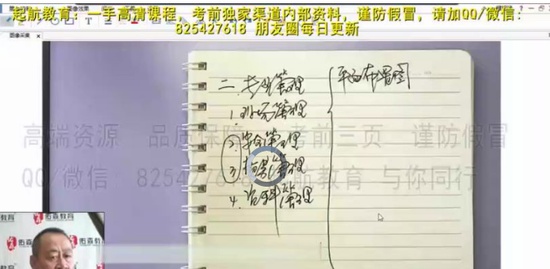 起航教育：一手高清课程，考前独家渠道内部资料，谨防假冒，请加QQ/微信：
825427618 朋友圈每日更新
二、专业管理
1.现场管理
平面布置图
高端资源 品质保障 考前三页 谨防假冒
2.安全管理
3
QQ/微信 825427618 航教育 与你同行
4.资料管理
佑森教育